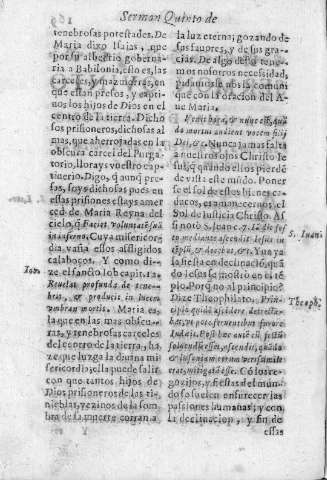 Sermon Quinto de
tenebrosas potestades. De
Maria dixo Isaias, que
por su albedrio governa-
ria a Babilonia, esto es, las
carceles, y mazmorras, en
que estan presos, y capti-
vos los hijos de Dios en el
centro de la tierra. Dicho
sos prisioneros, dichosas al
mas, que aherrojadas en la
obscura carcel del Purga-
torio, llorays vuestro capti-
verio. Digo, q̃ aunq̃ pre-
sas, soys dichosas pues en
essas prisiones estays a mer
ced de Maria Reyna del
cielo, q̃ Facies voluntatẽ suã
in inferno. Cuya misericor
dia, vaña essos afligidos
calaboços. Y como di-
ze el sancto Iob capit. 12.
Revelat profunda de tene-
bris, & producit in lucem
umbram mortis. Maria es
la que en las mas obscu-
ras, y tenebrosas carceles
del centro de la tierra, ha-
ze que luzga la divina mi
sericordia; ella puede salir
con que tantos hijos de
Dios prisioneros de las ti-
nieblas, y vezinos de la som
bra de la muerte corran a
la luz eterna; gozando de
sus favores, y de sus gra-
cias. De algo desto tene-
mos nosotros necessidad,
pidamosle nos la comuni
que con la oracion del A-
ve Maria.
Venit hora, & nunc est, quã
do mortui audient vocem filij
Dei, &c. Nunca jamas falta
a vuestros ojos Christo Ie
sus, q̃ quando ellos pierdẽ
de vista este mũdo. Ponen
se el sol de essos bienes ca-
ducos, es amaneceros el
Sol de Iusticia Christo. As
si notò S. Iuan c. 7. Iã die fes
to mediante ascendit Iesus in
tẽplũ, & docebat, &c. Yva ya
la fiesta en declinaciõ, quã
do Iesus se mostrò en el tẽ
plo. Porq̃ no al principio?
Dize Theophilato. Prin-
cipio quidẽ
Indæis. Post hæc autẽ
mitigata esse. Cõ los re-
gozijos, y fiestas del mun-
do se suelen enfurecer las
passiones humanas; y con
la declinacion, y fin de
essas
S. Iuan
Iob.
Theoph.